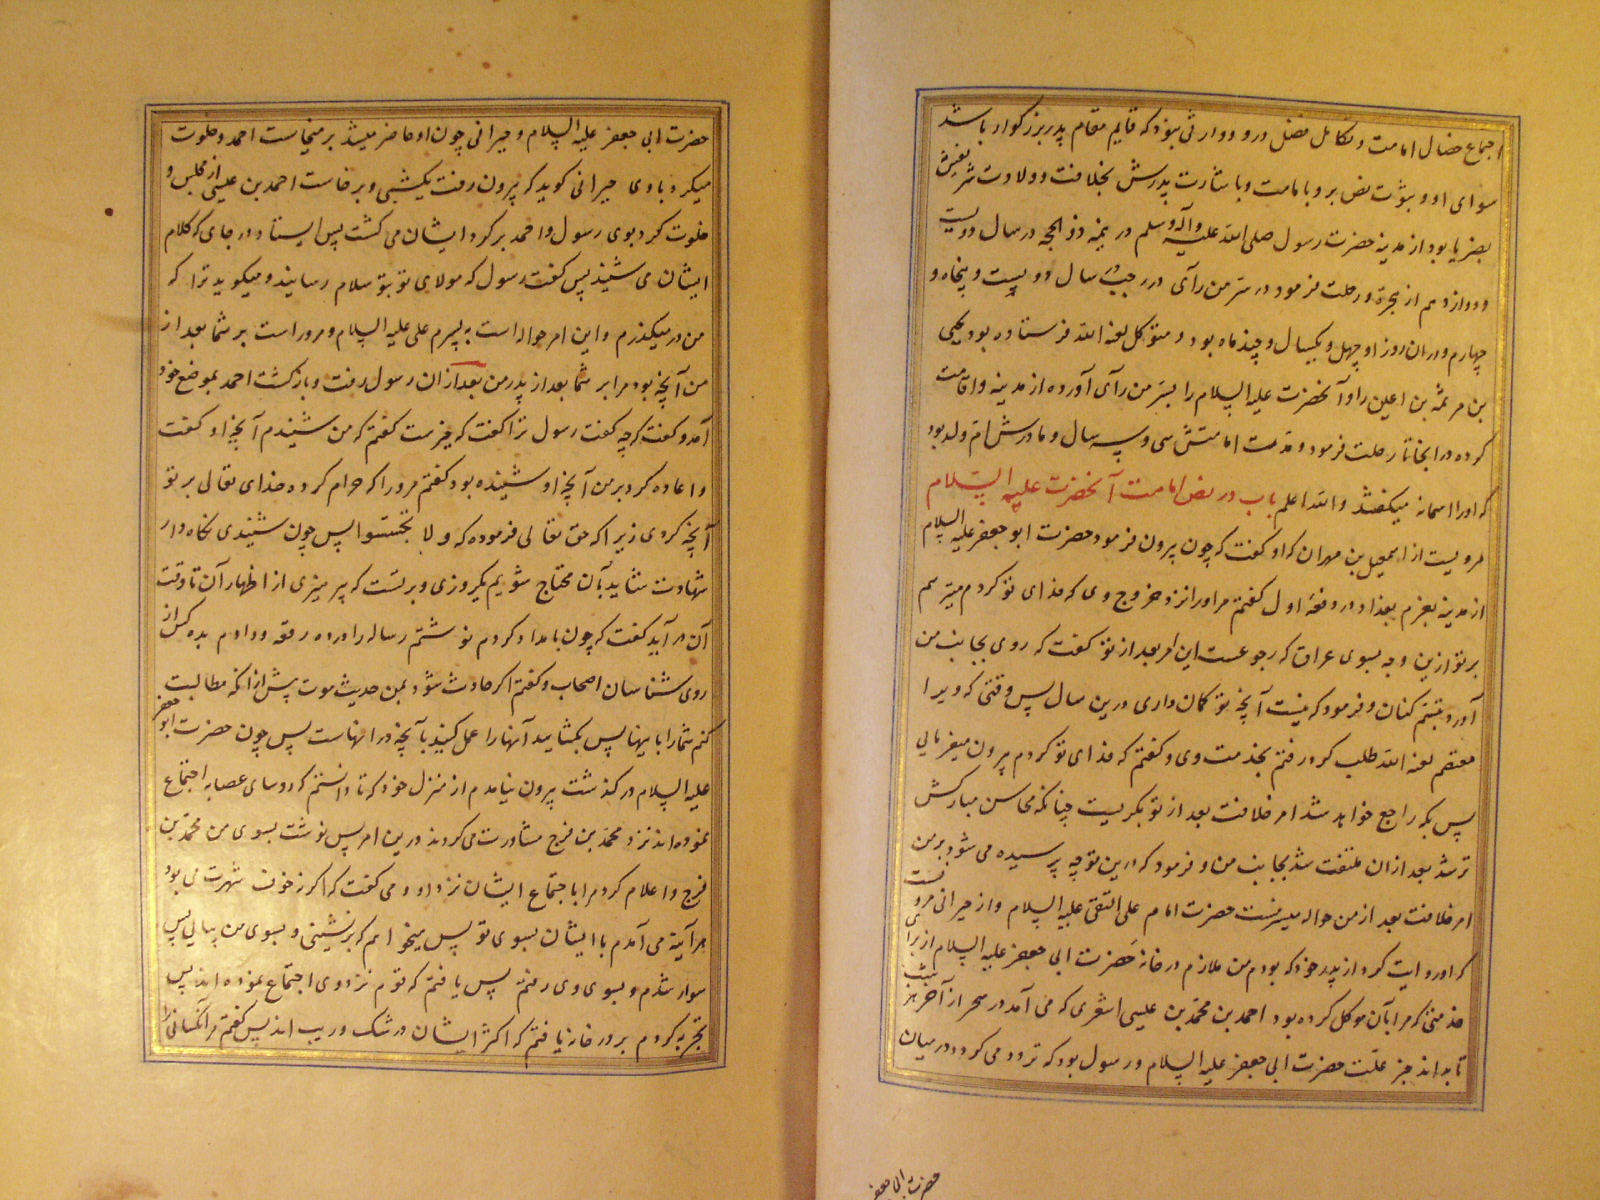 اجتماع خصال امامت و تکامل فضل درو و وارثی نبود که قایم مقام پدر بزرگوار باشد
سوای او و بثبوت نص برو بامامت و باشارت پدرش بخلافت و ولادت شریفش
بصریا بود از مدینه حضرت رسول صلی الله علیه وآله وسلم در نیمه ذی الحجه در سال دویست
و دوازدهم از هجرة و رحلت فرمود در سر من رآی در رجب سال دویست و پنجاه و
چهارم و دران روز او چهل و یکسال و چند ماه بود و متوکل لعنه الله فرستاده بود یحیی
بن هرثمة بن اعین را و آنحضرت علیه السلام را بسر من رآی آورده از مدینه و اقامت
کرده در اینجا تا رحلت فرمود و مدت امامتش سی و سه سال و مادرش ام ولد بود
که او را سمانه میگفتند والله اعلم باب در نص امامت آنحضرت علیه السلام
مرویست از اسمعیل بن مهران که او گفت که چون بیرون فرمود حضرت ابو جعفر علیه السلام
از مدینه بعزم بغداد در دفعهٔ اول گفتم مر او را نزد خروج وی که فدای تو کردم میترسم
بر تو ازین وجه بسوی عراق که رجوعست این امر بعد از تو گفت که روی بجانب من
آورد تبسم کنان و فرمود که نیست آنچه تو گمان داری درین سال پس وقتی که ویرا
معتصم لعنه الله طلب کرد رفتم بخدمت وی و گفتم که فدای تو کردم بیرون میفرمایی
پس بکه راجع خواهد شد امر خلافت بعد از تو بگریست چنانکه محاسن مبارکش
تر شد بعد ازان ملتفت شد بجانب من و فرمود که درین توجه پرسیده می شود بر من
امر خلافت بعد از من حواله بپسر منست حضرت امام علی النقی علیه السلام و از خیرانی مرویست
که او روایت کرد از پدر خود که بودم من ملازم در خانهٔ حضرت ابی جعفر علیه السلام از برای
خدمتی که مرا بآن موکل کرده بود و احمد بن محمد بن عیسی اشعری که می آمد در سحر از آخر هر شب
تا بداند خبر علت حضرت ابی جعفر علیه السلام و رسول بود که تردد می کرد در میان
حضرت ابی جعفر
حضرت ابی جعفر علیه السلام و خیرانی چون او حاضر میشد بر میخاست احمد و خلوت
میکرد با وی خیرانی گوید که بیرون رفت یکشبی و برخاست احمد بن عیسی از مجلس و
خلوت کرد بوی رسول و احمد بر گرد ایشان می گشت پس ایستاد در جای که کلام
ایشان می شنید پس گفت رسول که مولای تو بتو سلام رسانید و میگوید ترا که
من در میگذرم و این امر حواله است به پسرم علی علیه السلام و مرور است بر شما بعد از
من آنچه بود مرا بر شما بعد از پدر من بعد ازان رسول رفت و بازگشت احمد بموضع خود
آمد و گفت که چه گفت رسول ترا گفت که خیرست گفتم که من شنیدم آنچه او گفت
و اعاده کرد بر من آنچه او شنیده بود گفتم مرورا که حرام کرده خدای تعالی بر تو
آنچه کردی زیرا که حق تعالی فرموده که و لا تجسسوا پس چون شنیدی نگاه دار
شهادت شاید بآن محتاج شویم یکروزی و بر تست که پرهیزی از اظهار آن تا وقت
آن در آید گفت که چون بامداد کردم نوشتم رساله را در ده رقعه و دادم بده کس از
روی شناسان اصحاب و گفتم اگر حادث شود بمن حدیث موت پیش از آنکه مطالبت
کنم شما را باینها پس بگشایید آنها را عمل کنید بآنچه در انهاست پس چون حضرت ابو جعفر
علیه السلام در گذشت بیرون نیامدم از منزل خود که تا دانستم که روسای عصابه اجتماع
نموده اند نزد محمد بن فرج مشاورت می کردند درین امر پس نوشت بسوی من محمد بن
فرج و اعلام کرد مرا باجتماع ایشان نزد او و می گفت که اگر نه خوف شهرت می بود
هر آینه می آمدم با ایشان بسوی تو پس میخواهم که بر نشینی و بسوی من بیایی پس
سوار شدم و بسوی وی رفتم پس یافتم که قوم نزد وی اجتماع نموده اند پس
تجربه کردم بر در خانه یافتم که اکثر ایشان در شک و ریب اند پس گفتم مر آنکسانی را